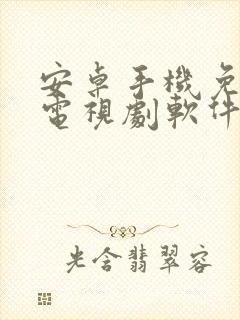 安卓手機免
電視劇軟件
光含翡翠容